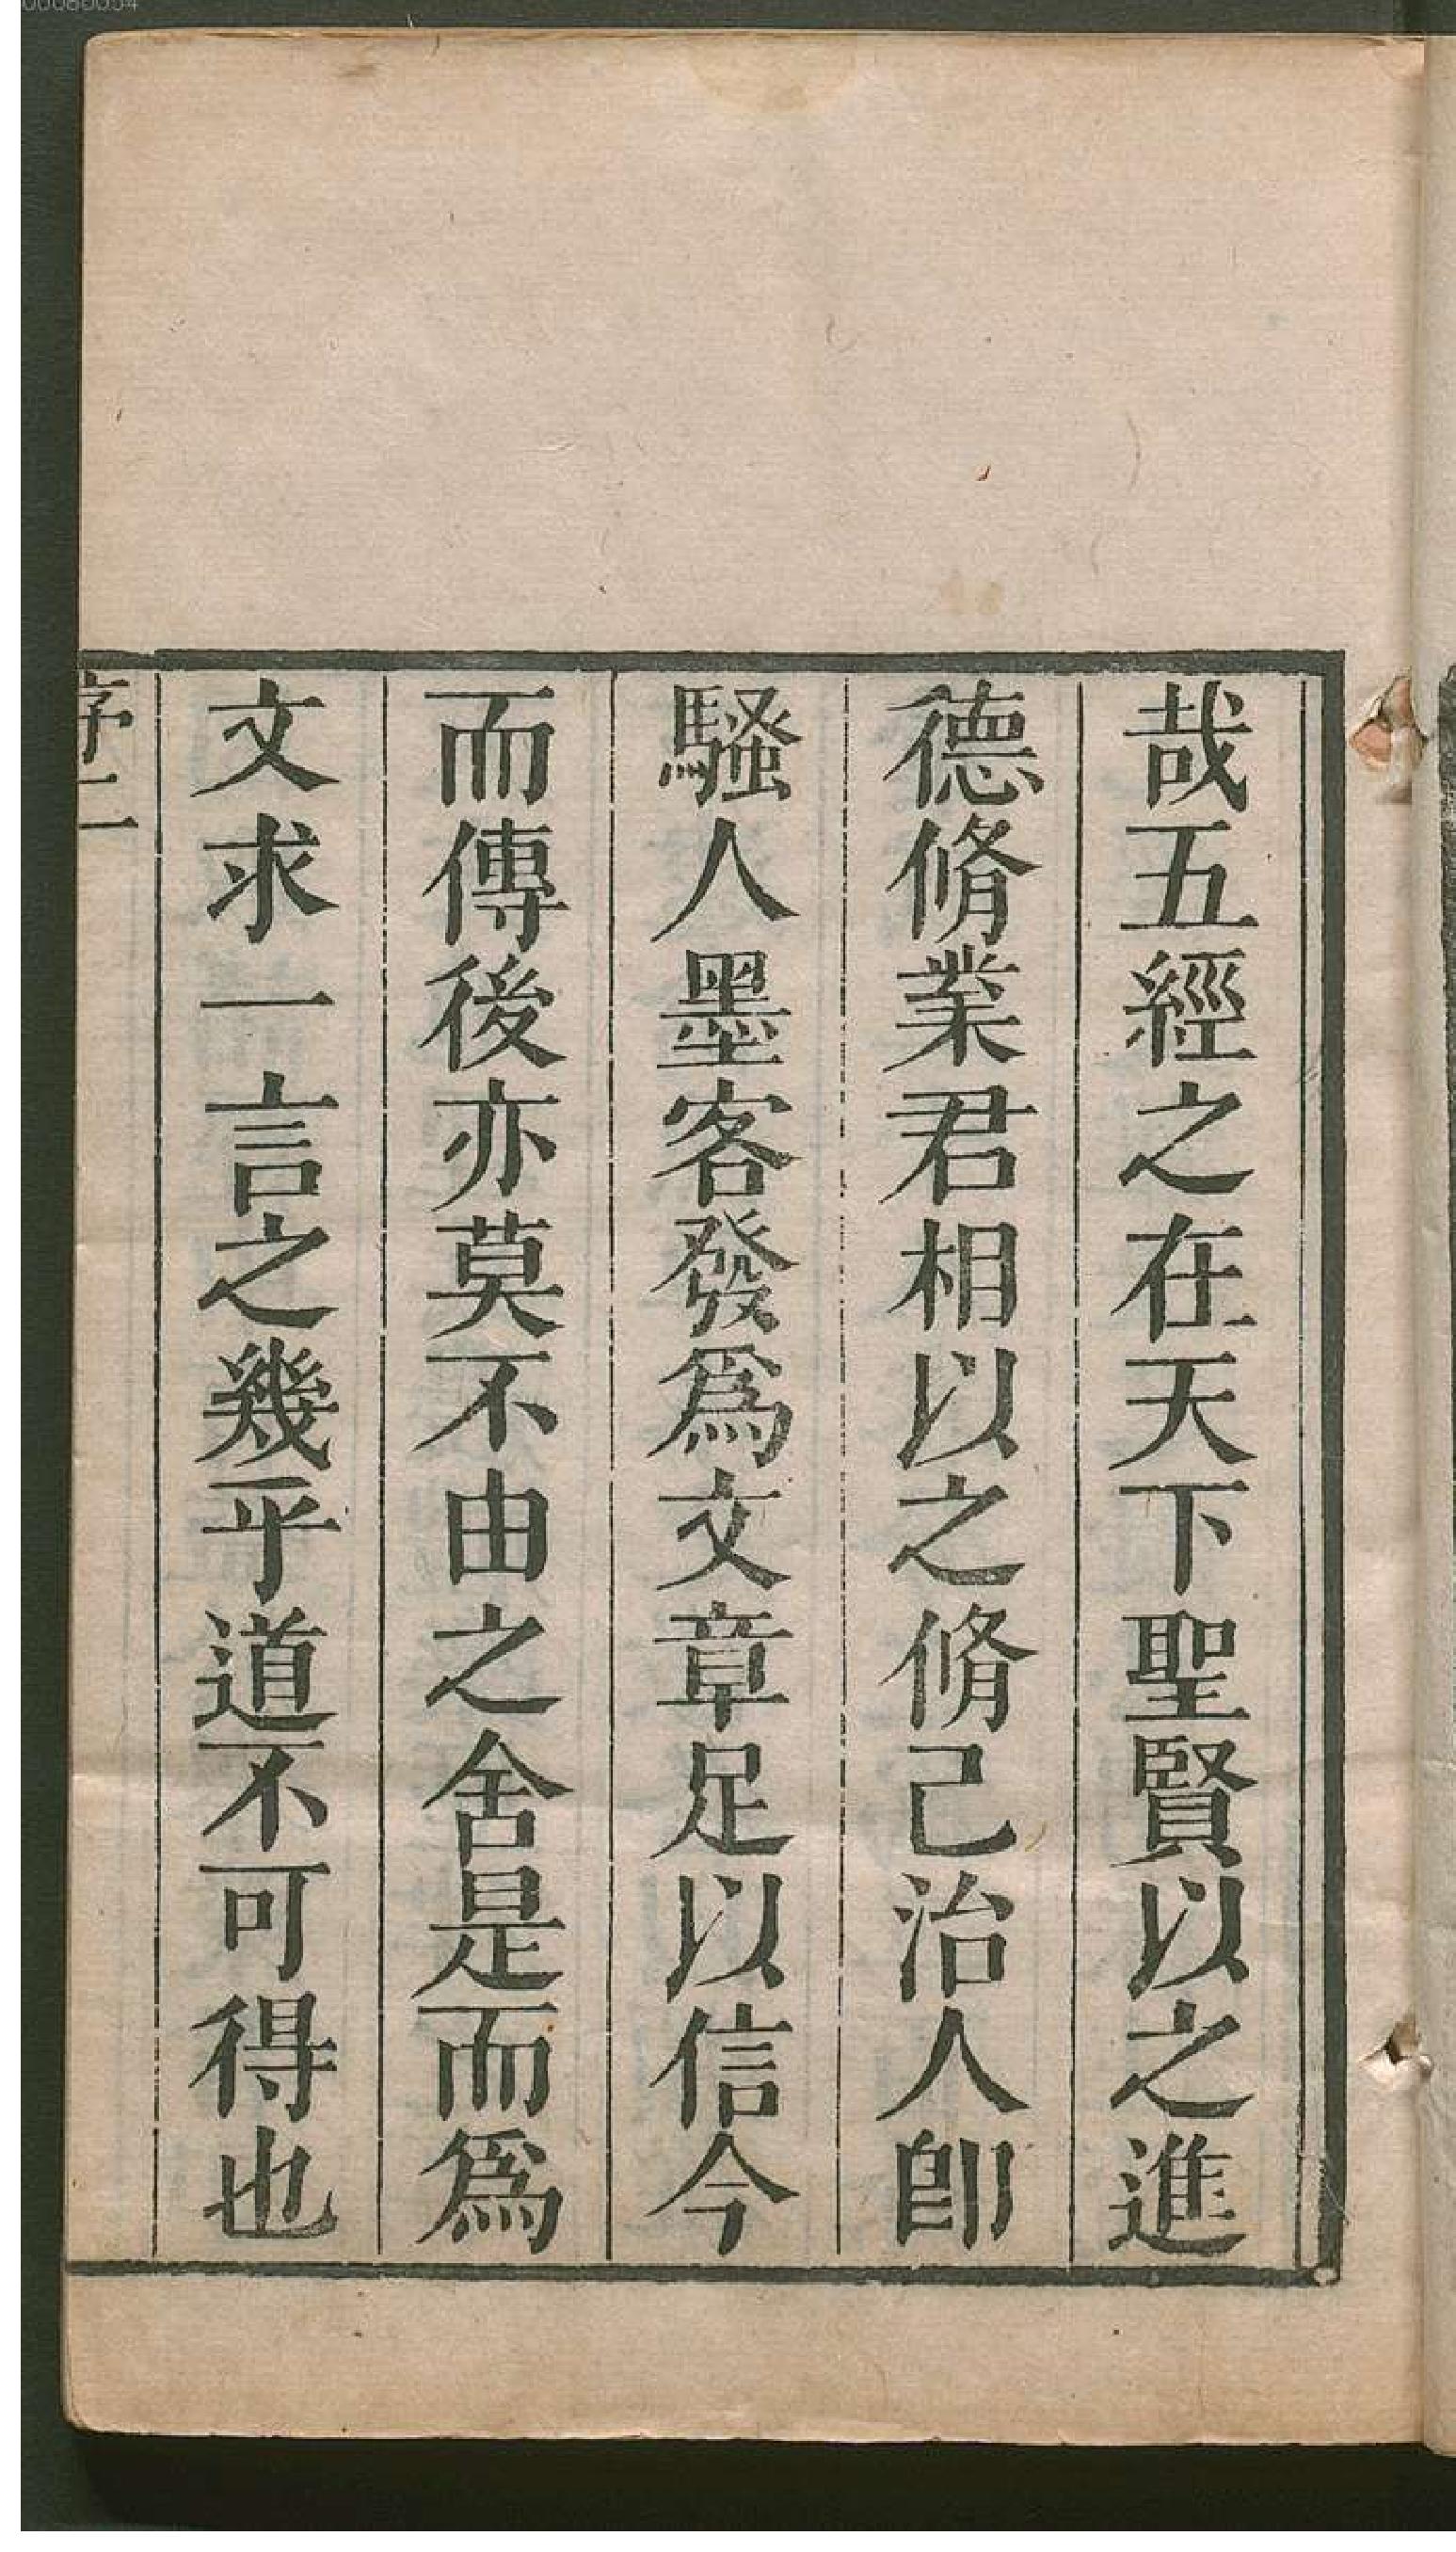 哉五經之在天下聖賢以之進
德脩業君相以之脩己治人卽
騷人墨客發爲文章足以信今
而傳後亦莫不由之舍是而爲
文求一言之幾乎道不可得也
序二
00080034